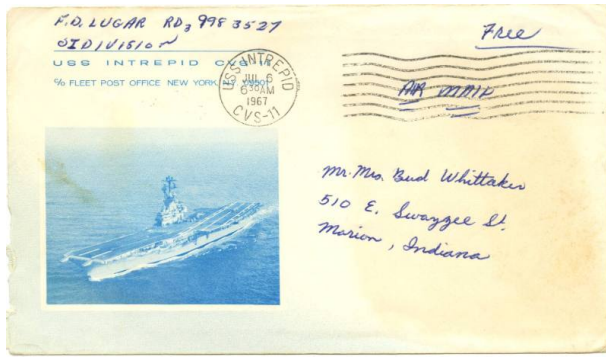 F.D. LUGAR RD3 998 3527
OI DIVISION
USS INTREPID CVS-11
c/o FLEET POST OFFICE NEW YORK
USS INTREPID
JUL 6
6 30 AM
1967
CVS-11
Free
AIR MAIL
Mr. Mrs. Bud Whittaker
510 E. Swayzee St.
Marion, Indiana